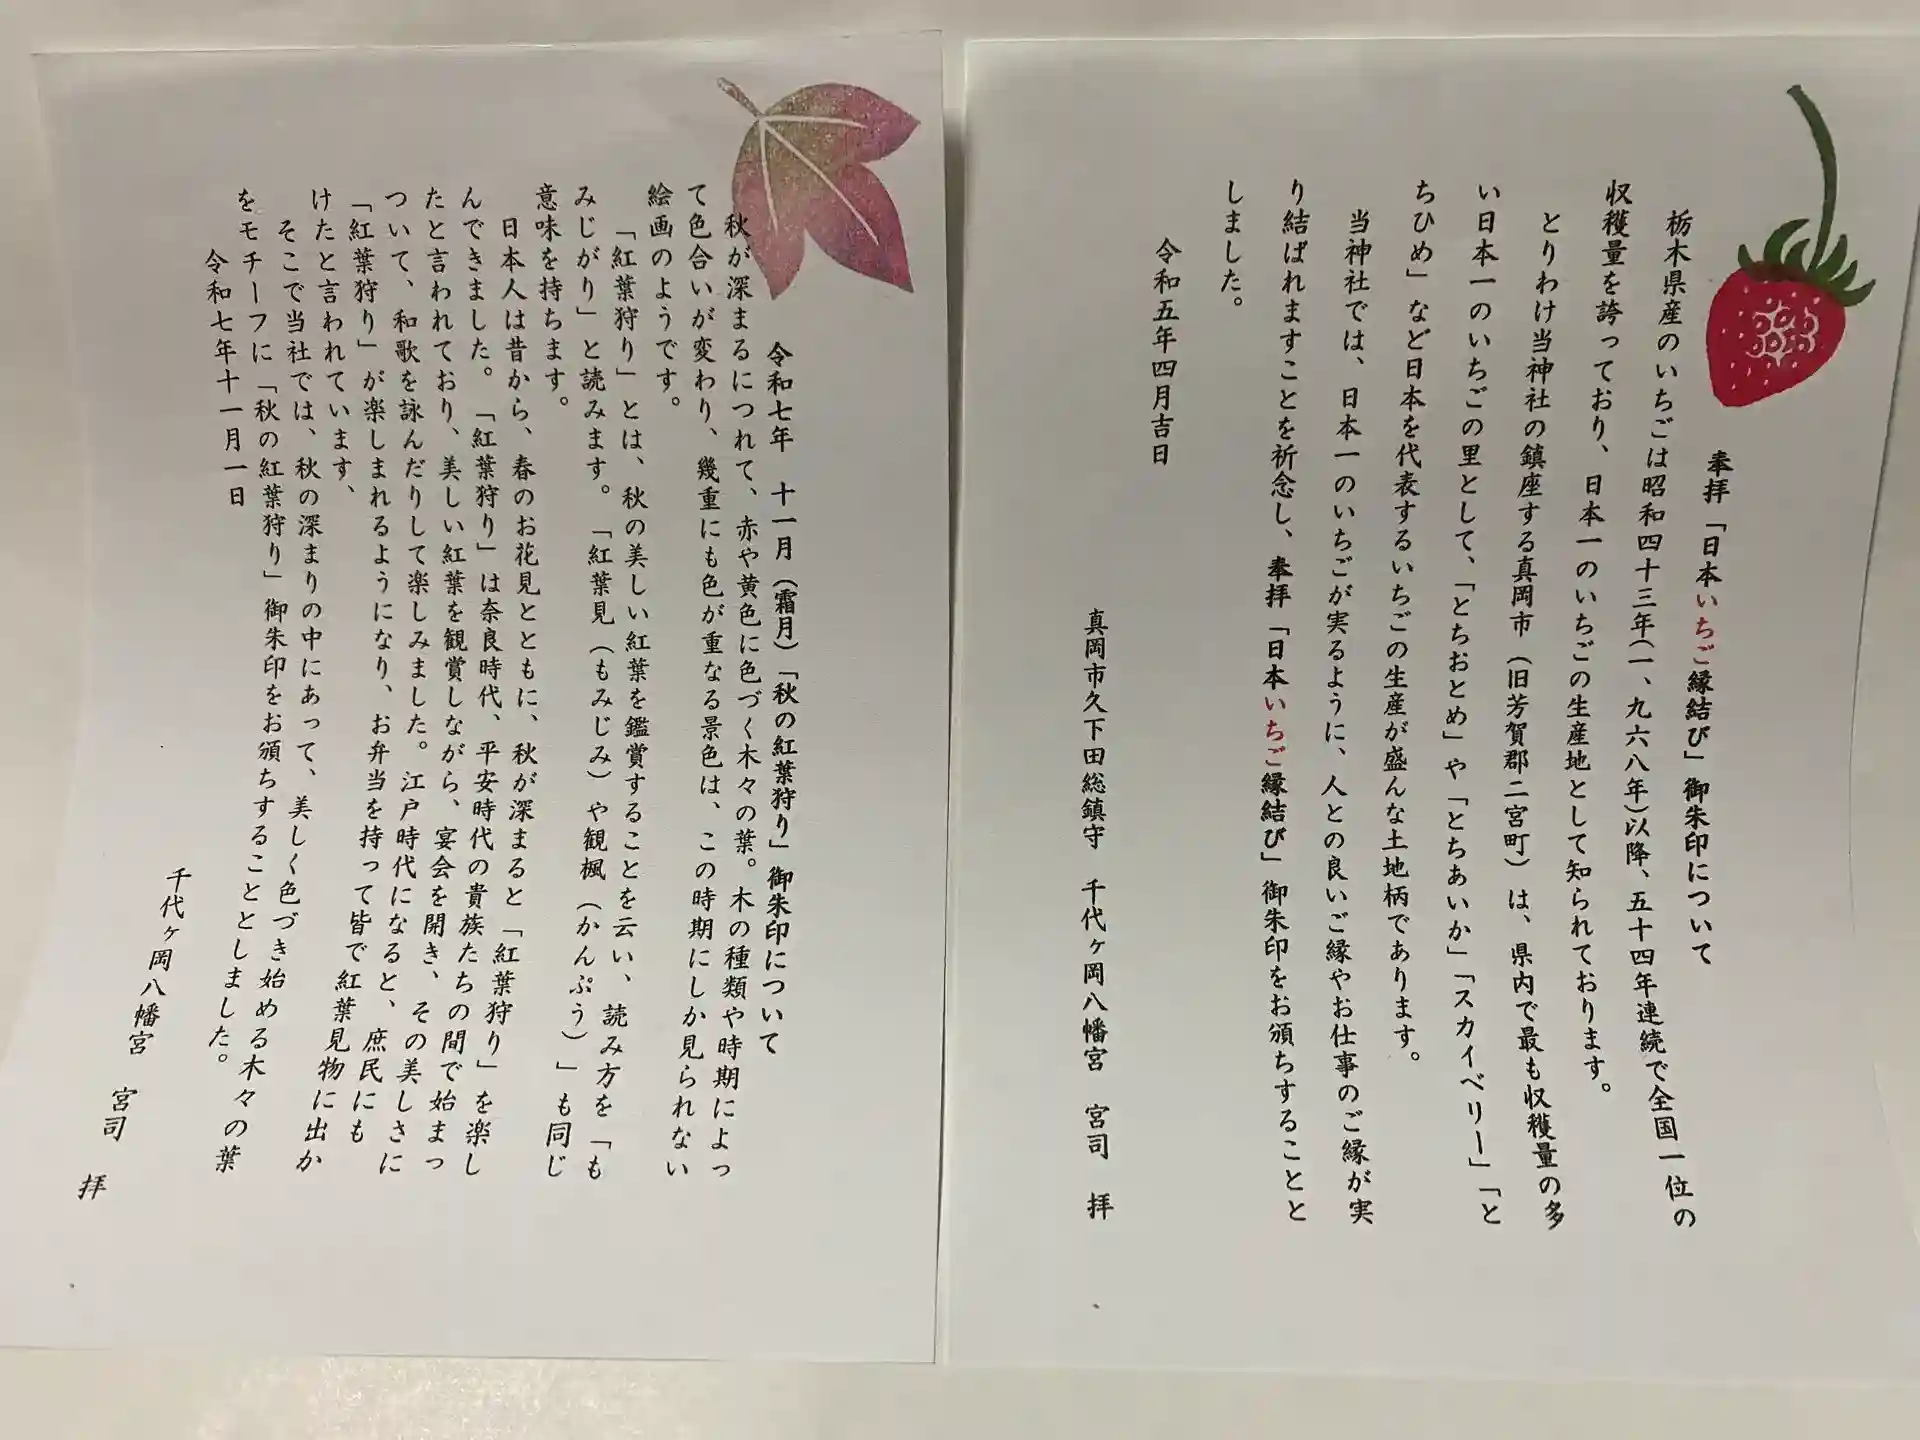 奉拝「日本いちご縁結び」御朱印について
栃木県産のいちごは昭和四十三年(一、九六八年)以降、五十四年連続で全国一位の
収穫量を誇っており、日本一のいちごの生産地として知られております。
とりわけ当神社の鎮座する真岡市（旧芳賀郡二宮町）は、県内で最も収穫量の多
い日本一のいちごの里として、「とちおとめ」や「とちあいか」「スカイベリー」「と
ちひめ」など日本を代表するいちごの生産が盛んな土地柄であります。
当神社では、日本一のいちごが実るように、人との良いご縁やお仕事のご縁が実
り結ばれますことを祈念し、奉拝「日本いちご縁結び」御朱印をお頒ちすることと
しました。
令和五年四月吉日
真岡市久下田総鎮守　千代ヶ岡八幡宮　宮司　拝
令和七年　十一月（霜月）「秋の紅葉狩り」御朱印について
秋が深まるにつれて、赤や黄色に色づく木々の葉。木の種類や時期によっ
て色合いが変わり、幾重にも色が重なる景色は、この時期にしか見られない
絵画のようです。
「紅葉狩り」とは、秋の美しい紅葉を鑑賞することを云い、読み方を「も
みじがり」と読みます。「紅葉見（もみじみ）や観楓（かんぷう）」も同じ
意味を持ちます。
日本人は昔から、春のお花見とともに、秋が深まると「紅葉狩り」を楽し
んできました。「紅葉狩り」は奈良時代、平安時代の貴族たちの間で始まっ
たと言われており、美しい紅葉を観賞しながら、宴会を開き、その美しさに
ついて、和歌を詠んだりして楽しみました。江戸時代になると、庶民にも
「紅葉狩り」が楽しまれるようになり、お弁当を持って皆で紅葉見物に出か
けたと言われています、
そこで当社では、秋の深まりの中にあって、美しく色づき始める木々の葉
をモチーフに「秋の紅葉狩り」御朱印をお頒ちすることとしました。
令和七年十一月一日
千代ヶ岡八幡宮　宮司　拝